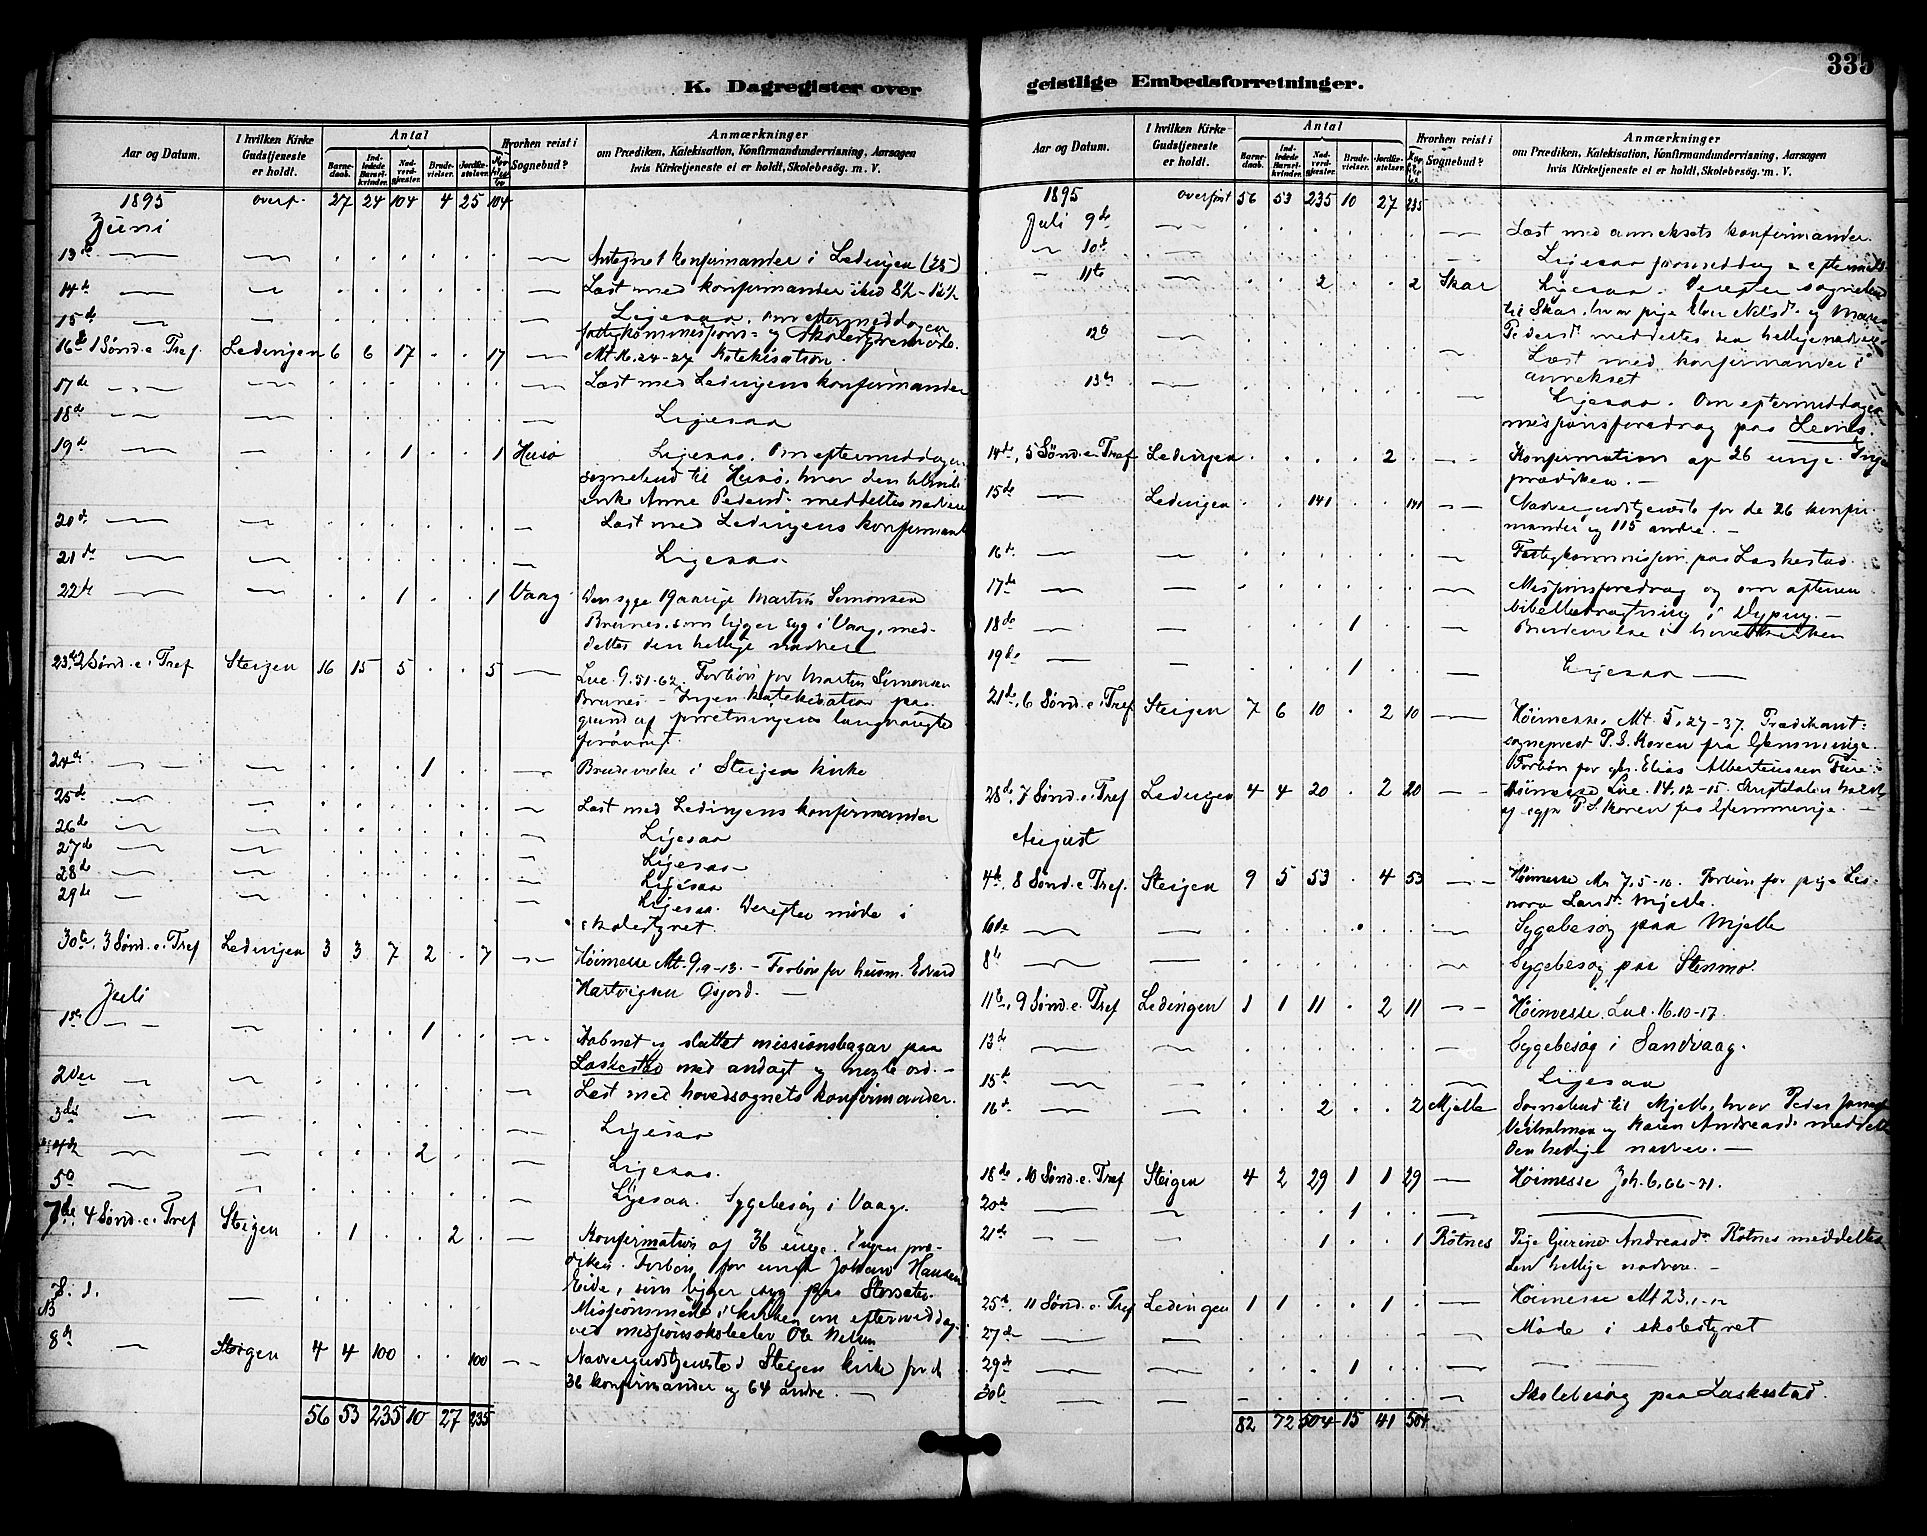 335
K. Dagregister over
geistlige Embedsforretninger.
Aar og Datum.
I hvilken Kirke Gudstjeneste er holdt.
Antal
Barnedaab.
Indledede Barselkvinder.
Nadverdgjester.
Brudevielser.
Jordfæstelser.
Hvorhen reist i Sognebud?
Anmærkninger
om Prædiken, Katekisation, Konfirmandundervisning, Aarsagen
hvis Kirketjeneste ei er holdt, Skolebesøg. m. V.
1895 overf. 27 24 104 4 25 104
Juni
13de Antegnet konfirmander i Ledingen (25)
14de Læst med konfirmander
15de Ligesaa. Om eftermeddagen
fattigkommissions- og skolestyremøde.
16de 1 Sønd. e. Tref. Ledingen 6 6 17 . . 17 Mt 16.24-27 Katekisation.
17de Læst med Ledingens konfirmander
18de Ligesaa
19de 1 . . 1 Husø Ligesaa. Om eftermeddagen
sognebud til Husø, hvor den blinde
enke Anne Pedersd. meddeltes nadvere
20de Læst med Ledingens konfirmand
21de Ligesaa.
22de 1 . . 1 Vaag Den syge 19 aarige Martin Simonsen
Brunes, som ligger syg i Vaag, med-
deltes den hellige nadvere
23de 2 Sønd. e. Tref Steigen 16 15 5 . . 5 Luc. 9.51-62. Forbøn for Martin Simonsen
Brunes - Ingen katekisation paa
grund af forretningens langvarighed
forøvrigt.
24de 1 Brudevielse i Steigen kirke
25de Læst med Ledingens konfirmander
26de Ligesaa
27de Ligesaa
28de Ligesaa
29de Ligesaa. Derefter møde i
skolestyret.
30te, 3 Sønd. e. Tref Ledingen 3 3 7 2 . 7 Høimesse Mt. 9.9-13. - Forbøn for husm. Edvard
Hartvigsen Osjord. -
Juli
1ste 1 Aabnet og sluttet missionsbazar paa
Laskestad med andagt og nogle ord. -
2den Læst med hovedsognets konfirmander.
3die Ligesaa
4de 2 Ligesaa.
5te Ligesaa. Sygebesøg i Vaag.
7de 4 Sønd. e. Tref Steigen . 1 . . 2 . Konfirmation af 36 unge. Ingen præ-
diken. Forbøn for ungk Johan Hansen
Eide, som ligger syg paa
7. d. Missionsmøde i kirken om eftermeddag
ved missionsskoleelev Ole
8de Steigen 4 4 100 . . 100 Nadvergudstjeneste i Steigen kirke for de
36 konfirmander og 64 andre. -
56 53 235 10 27 235
Aar og Datum.
I hvilken Kirke Gudstjeneste er holdt.
Antal
Barnedaab.
Indledede Barselkvinder.
Nadverdgjester.
Brudevielser.
Jordfæstelser.
Hvorhen reist i Sognebud?
Anmærkninger
om Prædiken, Katekisation, Konfirmandundervisning, Aarsagen
hvis Kirketjeneste ei er holdt, Skolebesøg. m. V.
1895 overført 56 53 235 10 27 235
Juli 9de Læst med anneksets konfirmander.
10de Ligesaa formiddag &
11te 2 . . 2 Skar Ligesaa. Derefter sognebud
til Skar, hvor pige Elen Nilsd. og Maren
Pedersd. meddeltes den hellige nadvere
12te Læst med konfirmander i
annekset
13de Ligesaa. Om eftermiddagen
missionsforedrag paa Leines
14de, 5 Sønd. e. Tref Ledingen 2 Konfirmation af 26 unge. Ingen
prædiken. -
15de Ledingen . . 141 . . 141 Nadvergudstjeneste for de 26 konfir-
mander og 115 andre. -
16de Fattigkommission paa Laskestad
17de Missionsforedrag og om aftenen
bibelbetragtning i Nyping. -
18de 1 Brudevielse i hovedkirken
19de 1 Ligesaa
21de, 6 Sønd. e. Tref Steigen 7 6 10 . 2 10 Høimesse. Mt. 5,27-37. Prædikant:
sogneprest P. S. Koren fra Gjemminge.
Forbøn for gbr. Elias Albertinssen Fure
28de, 7 Sønd. e. Tref Ledingen 4 4 20 . 2 20 Høimesse Luc. 14.12-15. Skriftetalen holdt
af sgpr P. S. Koren fra Gjemminge. -
August
4de, 8 Sønd. e. Tref. Steigen 9 5 53 . 4 53 Høimesse Mr 7,5-16. Forbøn for pige Le-
nora Larsd. Mjelle.
6de Sygebesøg paa Mjelle
8de Sygebesøg paa Stenmo.
11te, 9 Sønd. e. Tref Ledingen 1 1 11 . 2 11 Høimesse. Luc. 16.10-17.
13de Sygebesøg i Sandvaag.
15de Ligesaa
16de 2 . . 2 Mjelle Sognebud til Mjelle, hvor Peder
og Karen Andreasd. meddelt
den hellige nadver. -
18de, 10 Sønd. e. Tref Steigen 4 2 29 1 1 29 Høimesse Joh. 6.66-71.
20de 1
21de 1 . . 1 Røtnes Pige Gurine Andreasd. Røtnes meddeltes
den hellige nadvere. -
25de, 11 Sønd. e. Tref Ledingen 1 1 . . 1 Høimesse Mt 23.1-12
27de Møde i skolestyret
29de 1
30te Skolebesøg paa Laskestad.
82 72 504 15 41 504